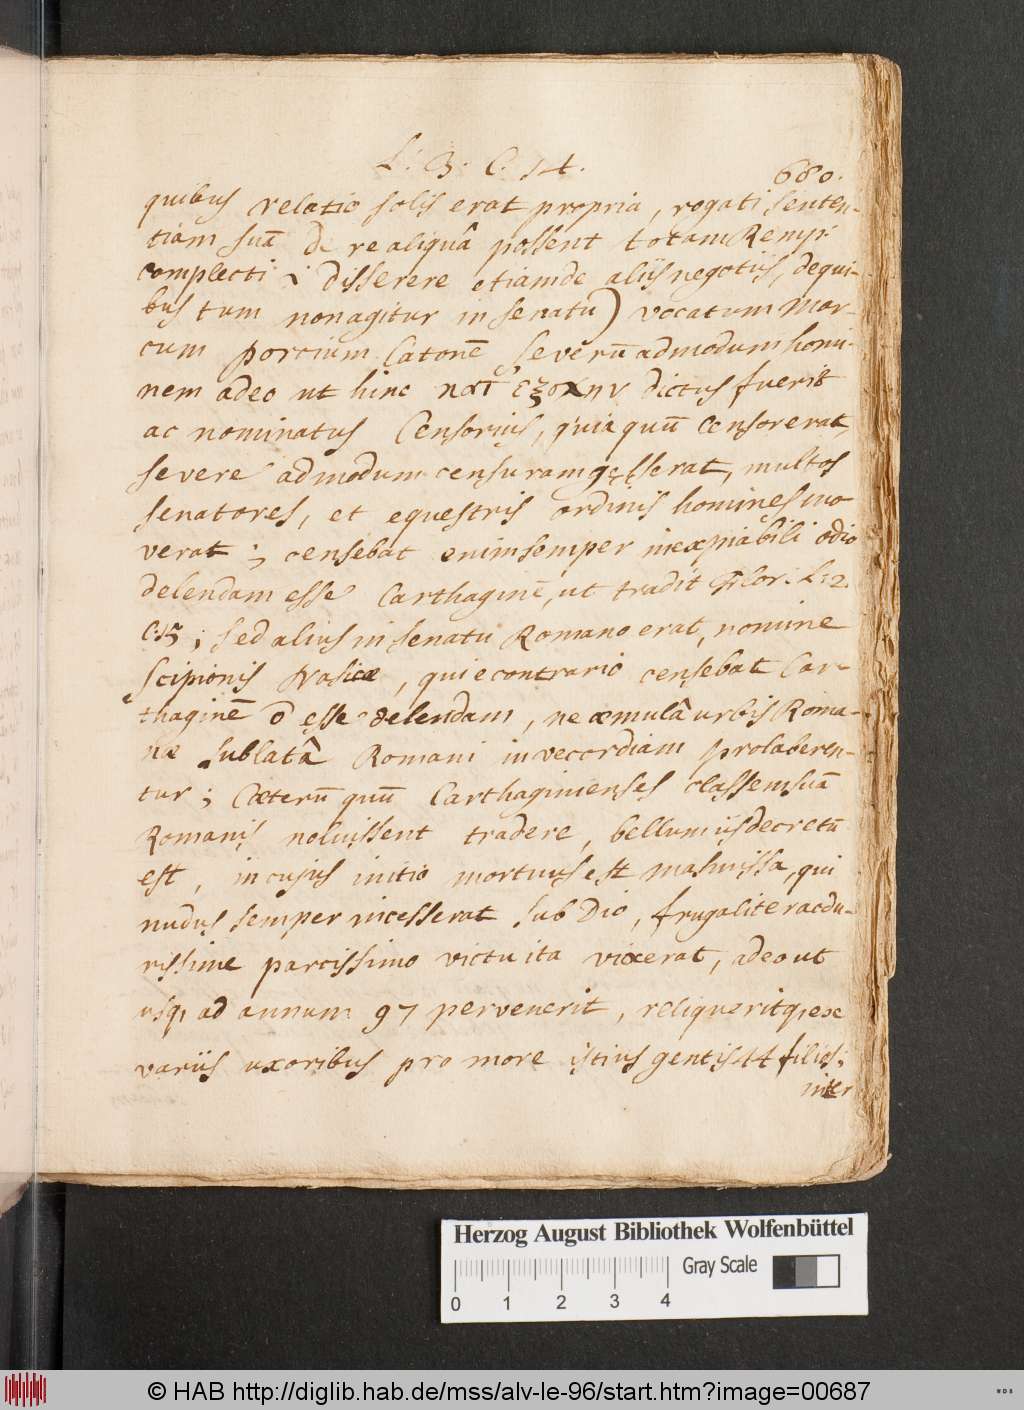 L: 3: C. 14.
680.
quibus relatio solis erat propria, rogati senten-
tiam suā de re aliquâ possent totam Remp:
complecti & disserere etiam de aliis negotiis, de qui-
bus tum non agitur in senatu) vocatum Mar-
cum Porcium Catonē severū admodum homi-
nem adeo ut hinc κατ' εξοχην dictus fuerit
ac nominatus Censorius, quia quū Censor erat,
severe admodum censuram gesserat, multos
senatores, et equestris ordinis homines mo
verat; censebat enim semper inexpiabili odio
delendam esse Carthaginē, ut tradit Flor: L: 2.
C. 15; sed alius in senatu Romano erat, nomine
Scipionis Nasicæ, qui e contrario censebat Car-
thaginē ō esse delendam, ne æmulâ urbis Roma-
næ sublatâ Romani in vecordiam prolaberen-
tur; Cæterū quū Carthaginienses classem suā
Romanis noluissent tradere, bellum iis decretū
est, in cujus initio mortuus est Masinissa, qui
nudus semper incesserat sub Dio, frugaliter ac du-
rissime parcissimo victu ita vixerat, adeo ut
usq, ad annum 97 pervenerit, reliqueritq, ex
variis uxoribus pro more istius gentis 44 filios;
inter
Herzog August Bibliothek Wolfenbüttel
Gray Scale
0 1 2 3 4
© HAB http://diglib.hab.de/mss/alv-le-96/start.htm?image=00687